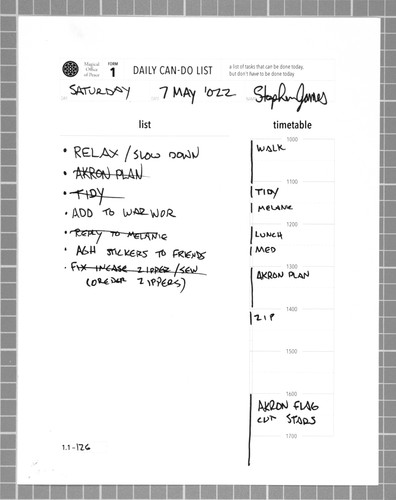 Magical
Office
of Peace
FORM
1
DAILY CAN-DO LIST
a list of tasks that can be done today,
but don't have to be done today.
SATURDAY 7 MAY '022 Stephen James
list
timetable
• RELAX / SLOW DOWN
• AKRON PLAN
• TIDY
• ADD TO WAR WOR
• REPLY TO MELANIE
• AGH STICKERS TO FRIENDS
• FIX INCASE ZIPPER/SEW
(ORDER ZIPPERS)
1000
WALK
1100
TIDY
MELANIE
1200
LUNCH
MED
1300
AKRON PLAN
1400
ZIP
1500
1600
AKRON FLAG
CUT STARS
1700
1.1-126